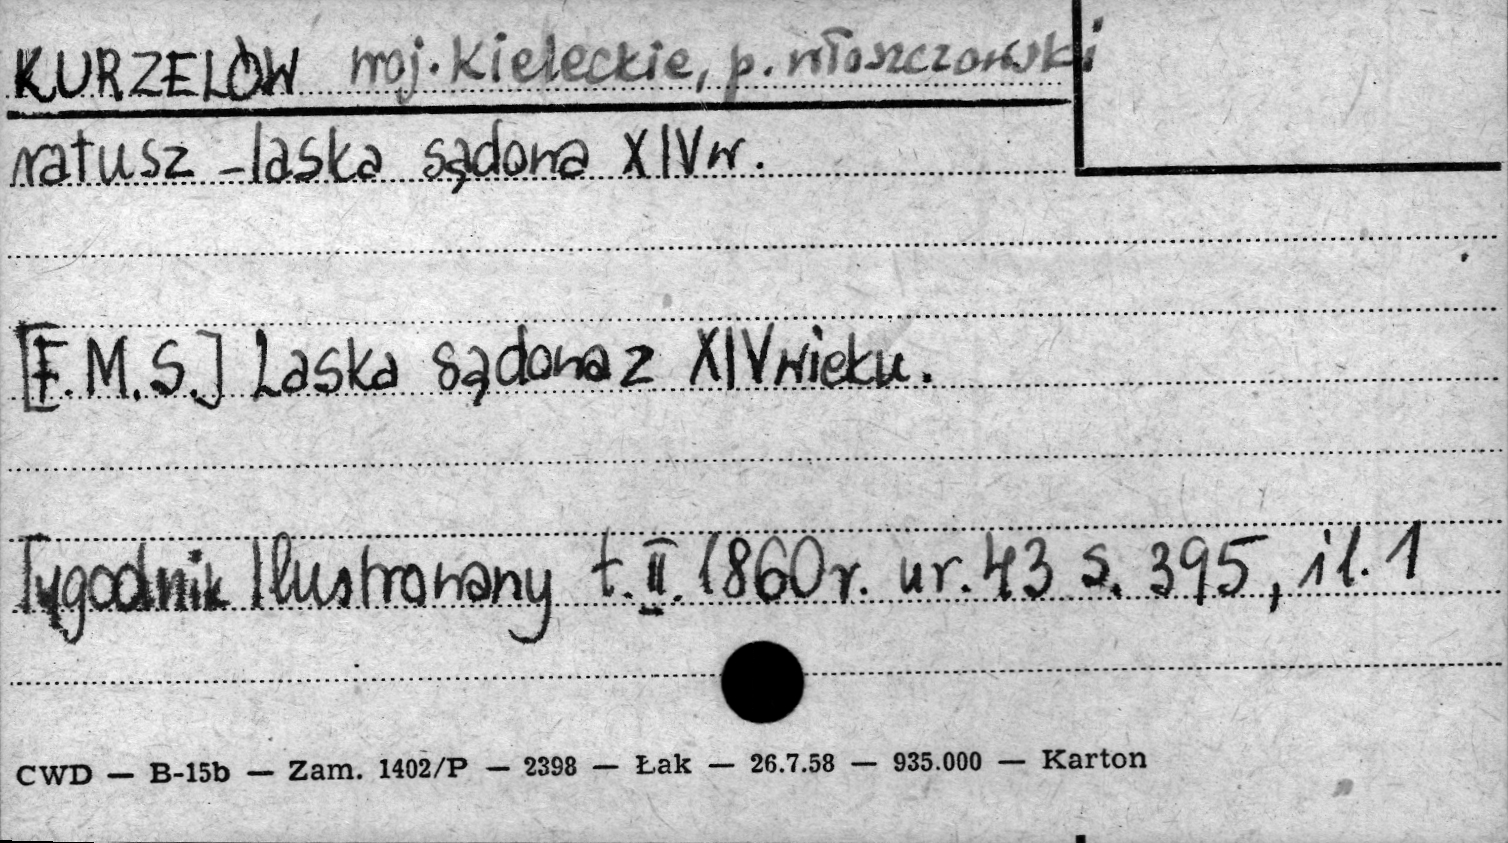 KURZELÓW woj. Kieleckie, p. włoszczowski
ratusz – laska sądowa XIV w.
[F.M.S.] Laska sądowa z XIV wieku.
Tygodnik Ilustrowany t. II. 1860 r. nr. 43 s. 395, il. 1
CWD — B-15b — Zam. 1402/P — 2398 — Łak — 26.7.58 — 935.000 — Karton